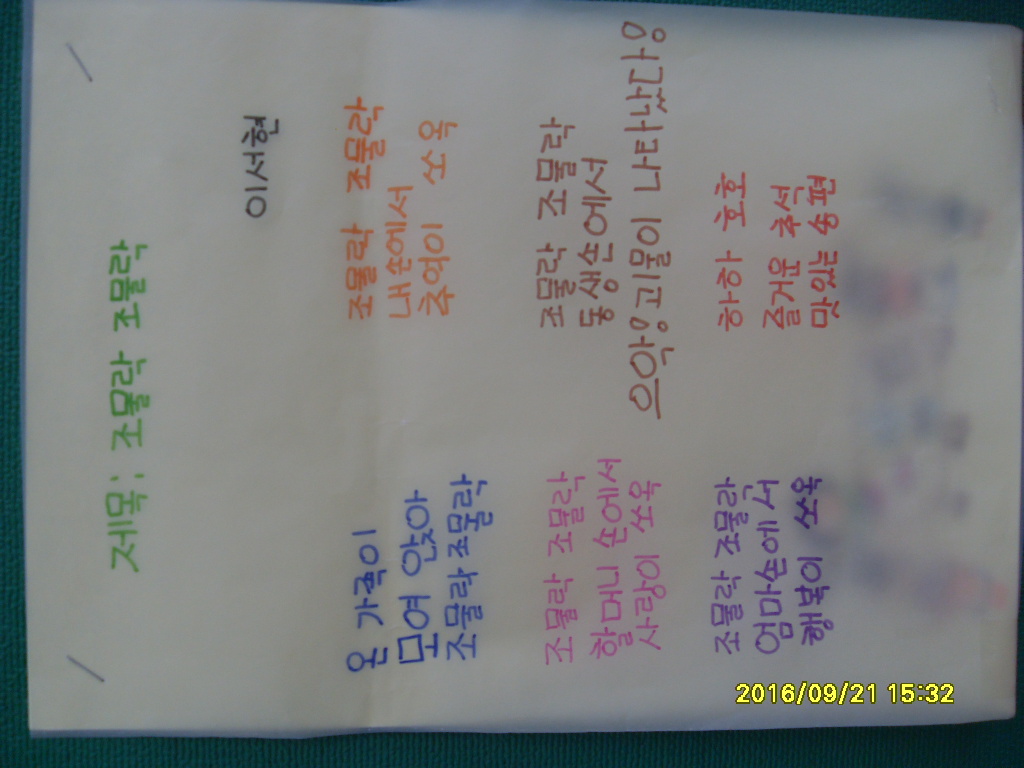 제목: 조물락 조물락
이서현
온 가족이
모여 앉아
조물락 조물락
조물락 조물락
할머니 손에서
사랑이 쏘옥
조물락 조물락
엄마손에서
행복이 쏘옥
조물락 조물락
내 손에서
추억이 쏘옥
조물락 조물락
동생손에서
으악! 괴물이 나타났다!
하하 호호
즐거운 추석
맛있는 송편
2016/09/21 15:32